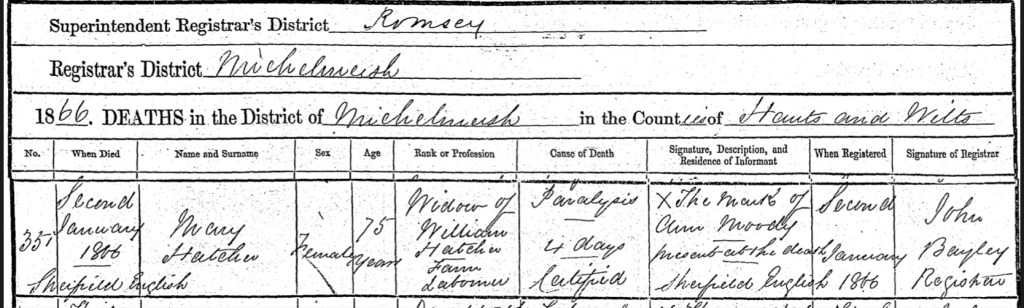 Superintendent Registrar's District Romsey
Registrar's District Michelmersh
1866. DEATHS in the District of Michelmersh in the Counties of Hants and Wilts
No. When Died Name and Surname Sex Age Rank or Profession Cause of Death Signature, Description, and Residence of Informant When Registered Signature of Registrar
351
Second
January
1866
Sherfield English
Mary
Hatcher
Female
75
years
Widow of
William
Hatcher
Farm
Laborer
Paralysis
4 days
Certified
X The mark of
Ann Moody
present at the death
Sherfield English
Second
January
1866
John
Bayley
Registrar